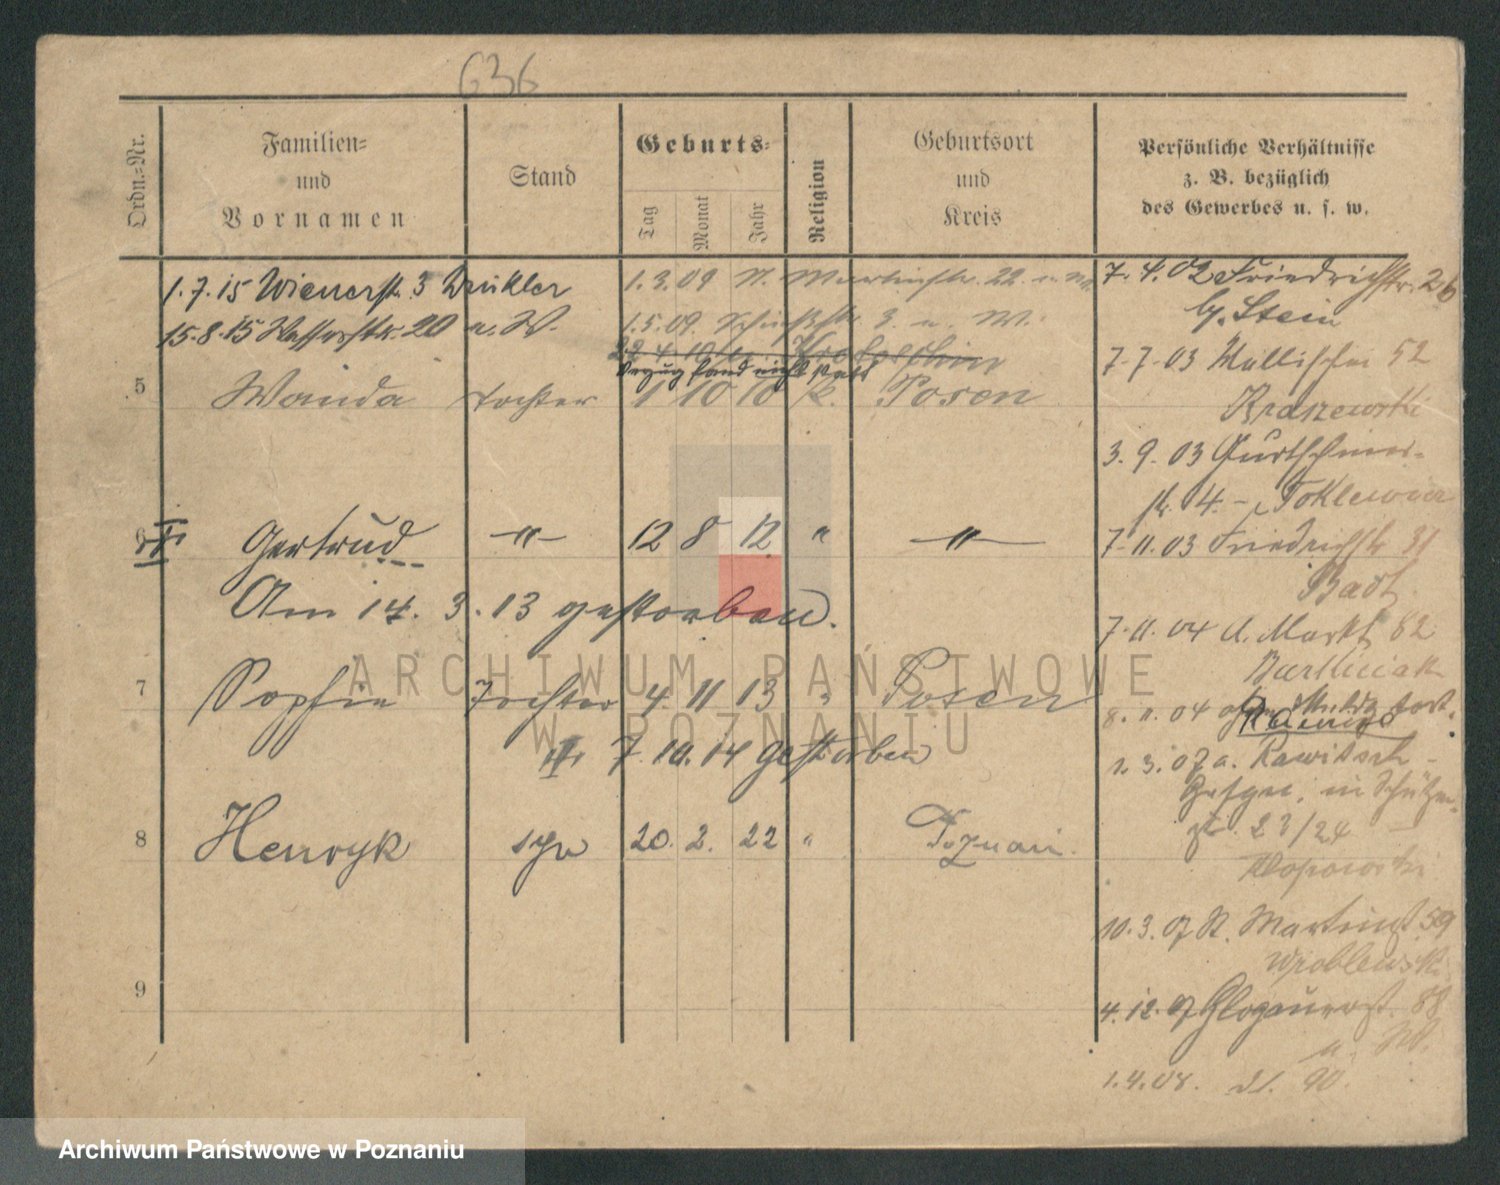 636
Ordn.-Nr.
Familien-
und
Vornamen
Stand
Geburts-
Tag
Monat
Jahr
Religion
Geburtsort
und
Kreis
Persönliche Verhältnisse
z. B. bezüglich
des Gewerbes u. s. w.
1.7.15 Wienerstr. 3 Winkler
15.8.15 Wasserstr. 20 u. W.
1.3.09 St. Martinstr. 22. u. W.
1.5.09 Schießstr. 3. u. W.
22 4 10 Krotoschin
Verzug fand nicht statt
5 Wanda Tochter 1 10 10 k. Posen
6 Gertrud –"– 12 8 12 " –"–
Am 14. 3. 13 gestorben.
7 Sophie Tochter 4. 11 13 " Posen
7. 10. 14 gestorben
8 Henryk syn 20. 2. 22 " Poznań.
9
7.4.02 Friedrichstr. 26
b/. Stein
7.7.03 Wallischei 52
Kraszewski
3.9.03 Gurtschiner-
str. 4. –
7.11.03 Friedrichstr 31
Badt.
7.11.04 A. Markt 82
Bartkiewicz
8.11.04
1.3.07 a. Rawitsch –
in Schützen-
str. 23/24
Klopowski
10.3.07 St. Martinst. 59
Wroblewski
4.12.07 Glogauerst. 88
u. W.
1.4.08. d. 90.
ARCHIWUM PAŃSTWOWE
W POZNANIU
Archiwum Państwowe w Poznaniu